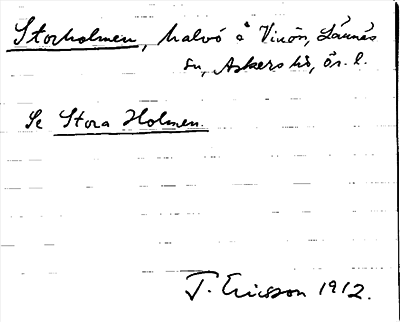 Storholmen, halvö å Vinön, Lännäs
sn, Askers hd, ör. l.
Se Stora Holmen.
T. Ericsson 1912.